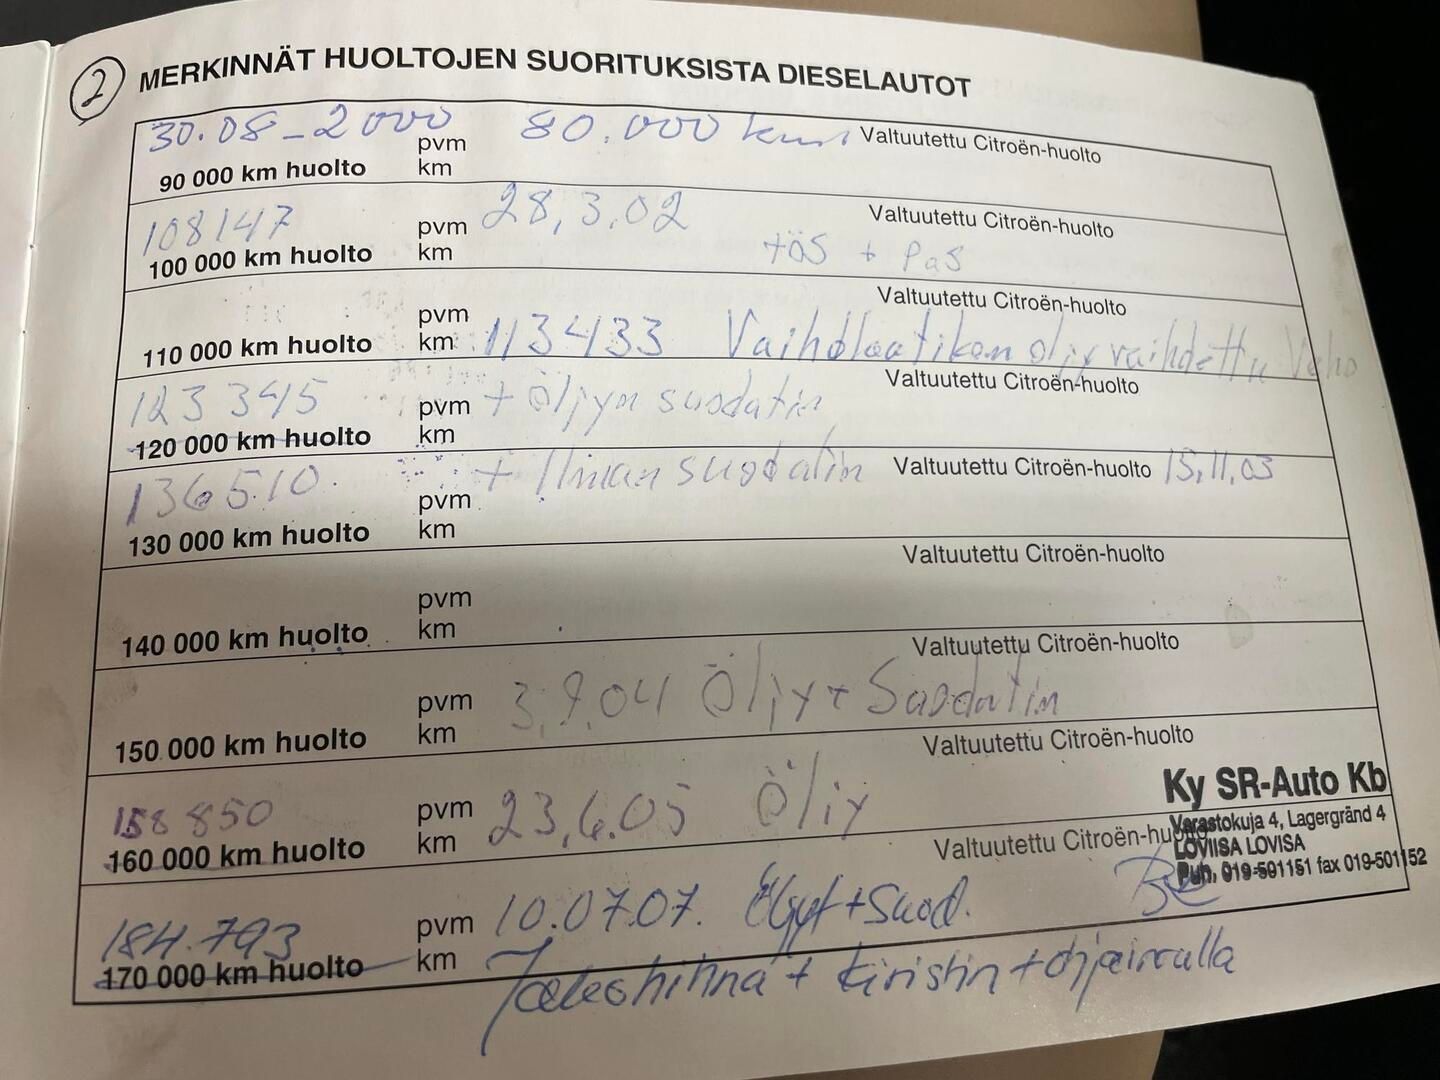 2 MERKINNÄT HUOLTOJEN SUORITUKSISTA DIESELAUTOT
30.08-2000 pvm 80.000 km Valtuutettu Citroën-huolto
90 000 km huolto km
108147 pvm 28,3.02 Valtuutettu Citroën-huolto
100 000 km huolto km töS + PaS
pvm Valtuutettu Citroën-huolto
110 000 km huolto km 113433 Vaihdelaatikon öljy vaihdettu Veho
123 345 pvm + Öljyn suodatin Valtuutettu Citroën-huolto
120 000 km huolto km
136510. pvm + Ilman suodatin Valtuutettu Citroën-huolto 15,11,03
130 000 km huolto km
pvm Valtuutettu Citroën-huolto
140 000 km huolto km
pvm 3,9.04 Öljy + Suodatin Valtuutettu Citroën-huolto
150 000 km huolto km
158 850 pvm 23,6.05 Öljy Valtuutettu Citroën-huolto
160 000 km huolto km
Ky SR-Auto Kb
Varastokuja 4, Lagergränd 4
LOVIISA LOVISA
Puh. 019-501151 fax 019-501152
184.793 pvm 10.07.07. Öljyt + Suod. Valtuutettu Citroën-huolto
170 000 km huolto km
Jakohihna + kiristin + ohjainrulla